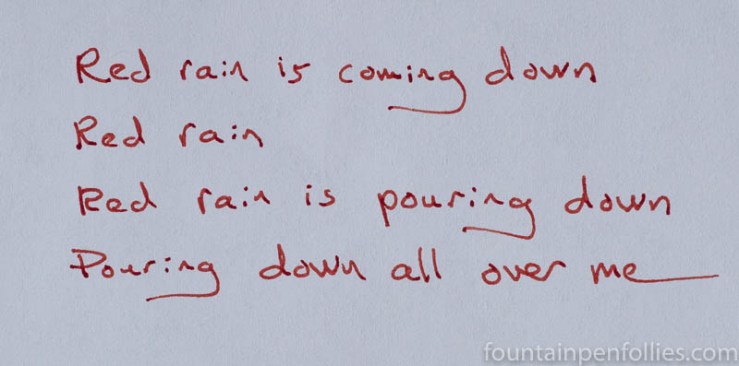 Red rain is coming down
Red rain
Red rain is pouring down
Pouring down all over me
fountainpenfollies.com